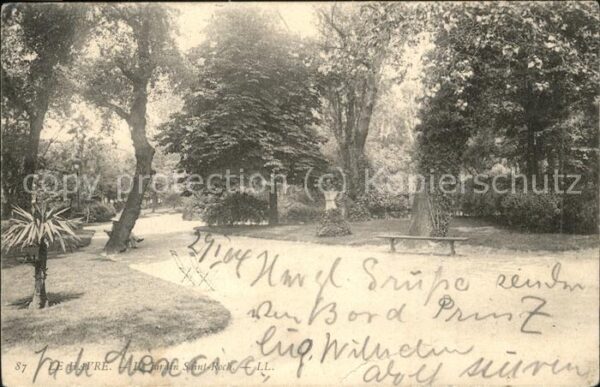 copyright protection © Kopierschutz
29/1 04 Herzl. Grüße senden
von Bord Prinz
Eug. Wilhelm
87 LE HAVRE. — Le Jardin Saint-Roch. — LL.
Adolf